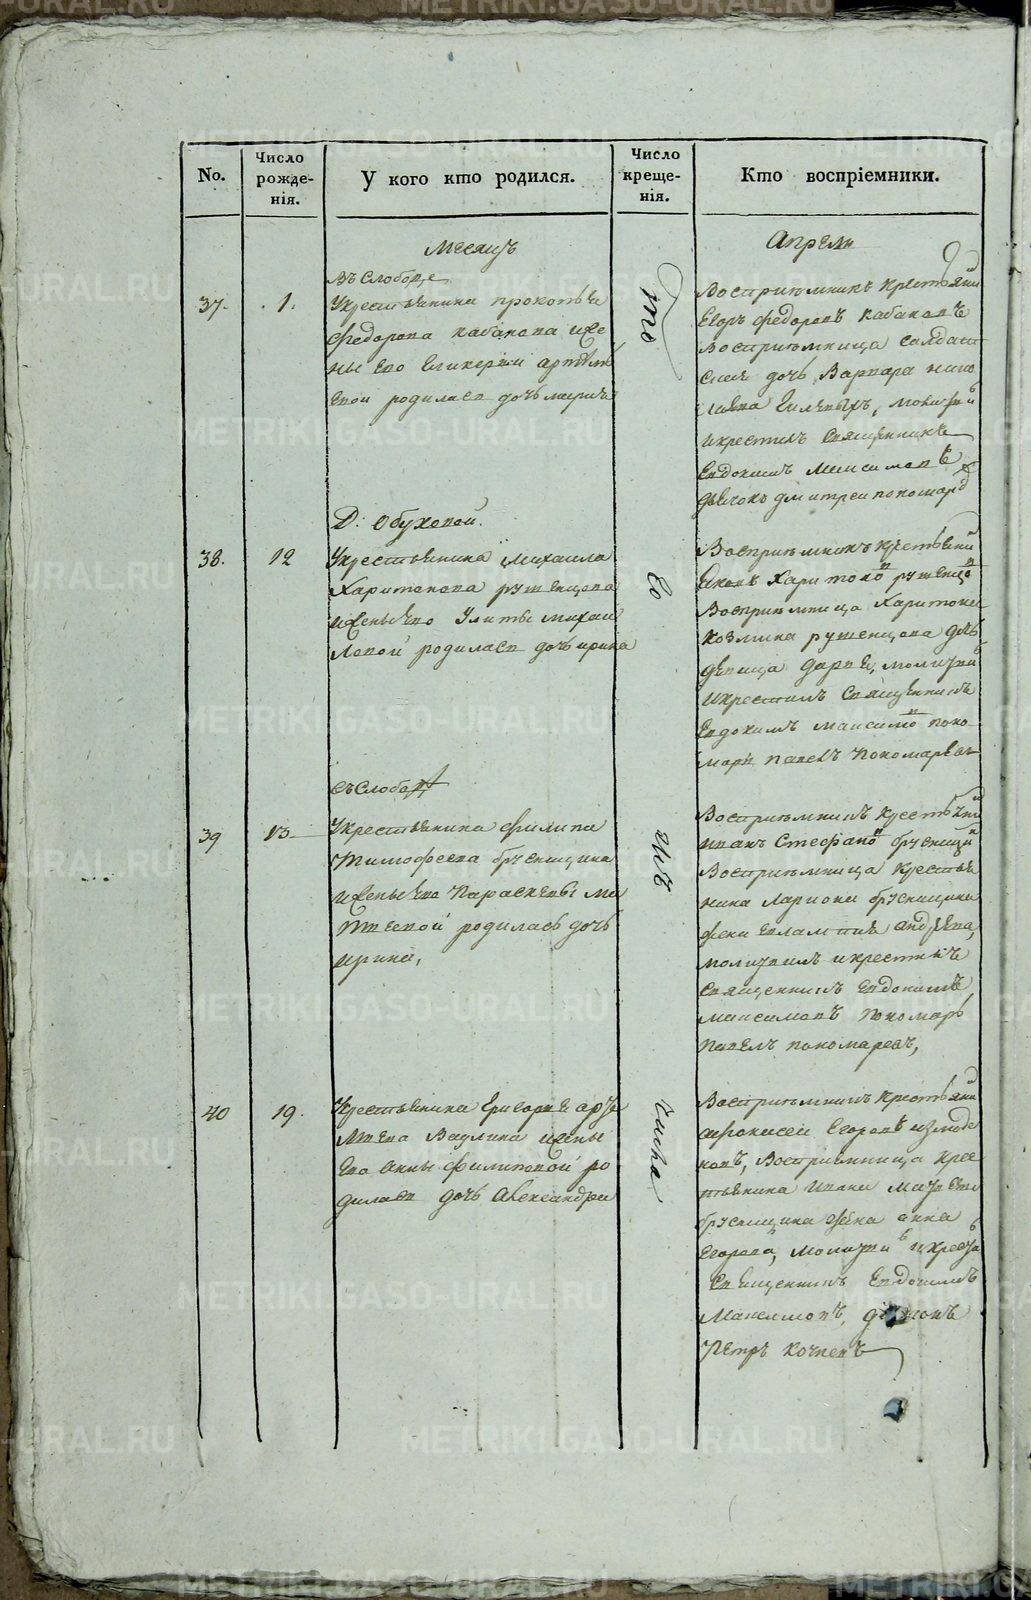 No.
Число рожденія.
У кого кто родился.
Число крещенія.
Кто воспріемники.
Месяцъ
Апрель
Въ Слободе
37.
1.
Укрестьянина прокопья
федорова кабакова иже
ны его гликерии артемь
евой родилась дочь мариѧ
Восприемникъ крестьяни
Егоръ федоровъ кабаковъ
восприемница салдат
ская дочь Варвара нико
молитви
икрестилъ священникъ
Евдокимъ максимовъ
дьячокъ дмитреи пономар
Д: Обуховой.
38.
12
Укрестьянина Михаила
Харитонова рушенцова
ижены его Улиты михаи
ловой родилась дочь ирина
Восприемникъ крестьяни
Яковъ Харитоно рушенцо
Восприемница Харитона
козмина рушенцова дочь
девица дарья, молитви
икрестилъ священникъ
Евдокимъ максимо поно
марь павелъ пономаревъ
Въ слободе
39
13
Укрестьянина филипа
тимофеева брусницина
ижены его Параскевы ма
твеевой родилась дочь
ирина,
Восприемникъ крестьяни
иванъ Стефано брусници
Восприемница крестья
нина лариона брусницина
жена евлампия андреева,
молитвилъ икрестилъ
священникъ евдокимъ
максимовъ пономарь
павелъ пономаревъ,
40
19.
Укрестьянина Григорья
ижены
его анны филиповой ро
дилась дочь александра
Восприемникъ крестьяни
Егоровъ измоде
новъ, Восприемница крес
тьянина ивана матвеева
брусницина жена анна
Егорова, молитви икрести
священникъ Евдокимъ
Максимовъ, дьячокъ
Петръ кочневъ
тогоже числа
METRIKI.GASO-URAL.RU